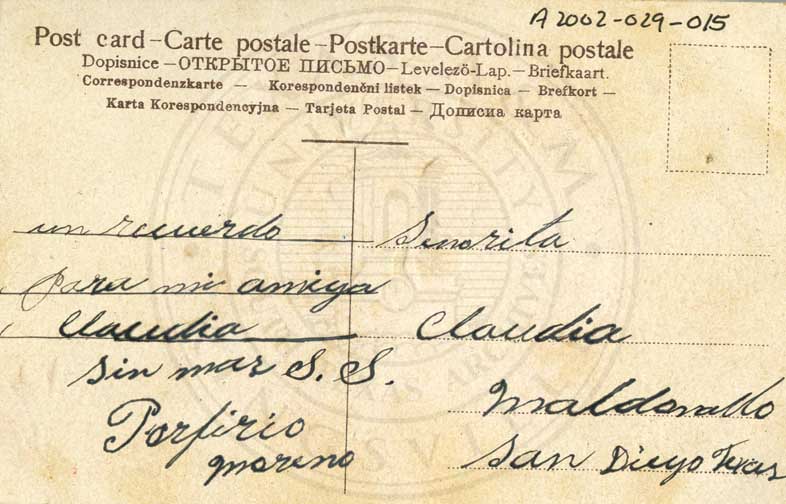 A2002-029-015
Post card – Carte postale – Postkarte – Cartolina postale
Dopisnice – ОТКРЫТОЕ ПИСЬМО – Levelező-Lap. – Briefkaart.
Correspondenzkarte – Korespondenční listek – Dopisnica – Brefkort –
Karta Korespondencyjna – Tarjeta Postal – Дописна карта
un recuerdo
para mi amiga
Claudia
sin mas S. S.
Porfirio
moreno
Senorita
Claudia
Maldonallo
San Diego Texas